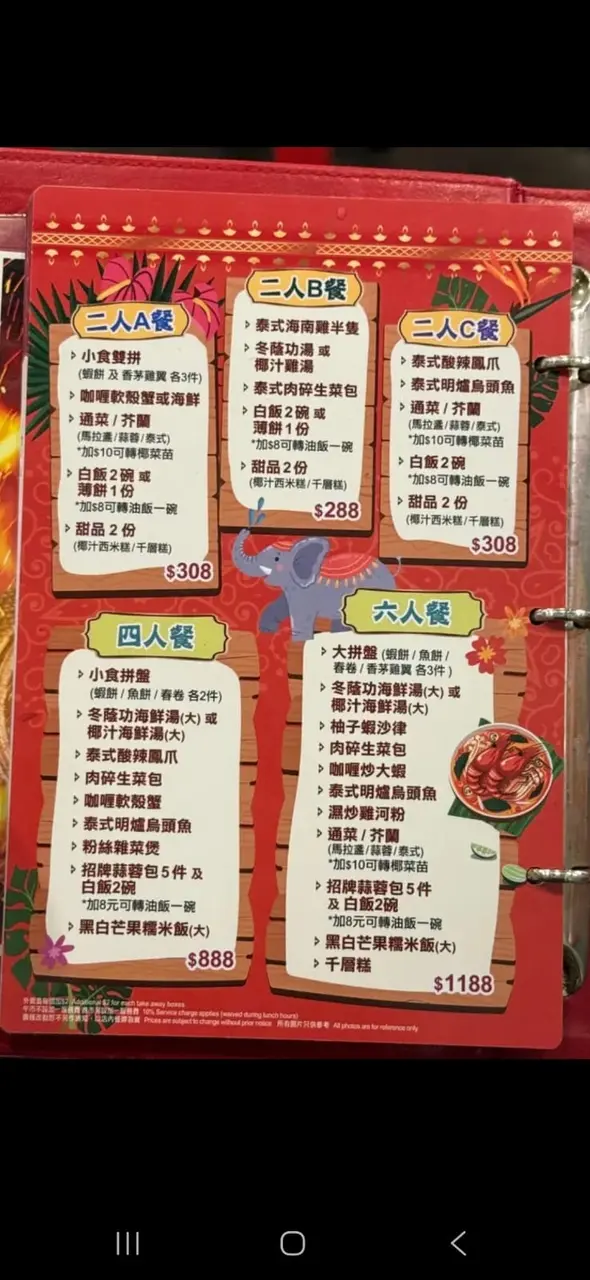 二人A餐
小食雙拼
(蝦餅 及 香茅雞翼 各3件)
咖喱軟殼蟹或海鮮
通菜 / 芥蘭
(馬拉盞/蒜蓉/泰式)
*加$10可轉椰菜苗
白飯2碗 或
薄餅1份
*加$8可轉油飯一碗
甜品2份
(椰汁西米糕/千層糕)
$308
二人B餐
泰式海南雞半隻
冬蔭功湯 或
椰汁雞湯
泰式肉碎生菜包
白飯2碗 或
薄餅1份
*加$8可轉油飯一碗
甜品2份
(椰汁西米糕/千層糕)
$288
二人C餐
泰式酸辣鳳爪
泰式明爐烏頭魚
通菜 / 芥蘭
(馬拉盞/蒜蓉/泰式)
*加$10可轉椰菜苗
白飯2碗
*加$8可轉油飯一碗
甜品2份
(椰汁西米糕/千層糕)
$308
四人餐
小食拼盤
(蝦餅 / 魚餅 / 春卷 各2件)
冬蔭功海鮮湯(大) 或
椰汁海鮮湯(大)
泰式酸辣鳳爪
肉碎生菜包
咖喱軟殼蟹
泰式明爐烏頭魚
粉絲雜菜煲
招牌蒜蓉包5件 及
白飯2碗
*加8元可轉油飯一碗
黑白芒果糯米飯(大)
$888
六人餐
大拼盤 (蝦餅 / 魚餅 /
春卷 / 香茅雞翼 各3件)
冬蔭功海鮮湯(大) 或
椰汁海鮮湯(大)
柚子蝦沙律
肉碎生菜包
咖喱炒大蝦
泰式明爐烏頭魚
濕炒雞河粉
通菜 / 芥蘭
(馬拉盞/蒜蓉/泰式)
*加$10可轉椰菜苗
招牌蒜蓉包5件
及白飯2碗
*加8元可轉油飯一碗
黑白芒果糯米飯(大)
千層糕
$1188
Additional $2 for each take away boxes
10% Service charge applies (waived during lunch hours)
Prices are subject to change without prior notice 所有圖片只供參考 All photos are for reference only